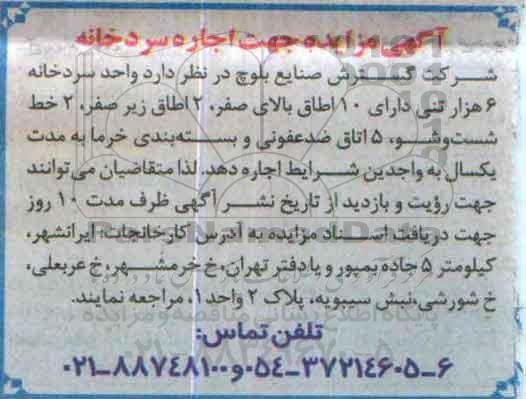 آگهی مزایده جهت اجاره سردخانه
شرکت گسترش صنایع بلوچ در نظر دارد واحد سردخانه
۶ هزار تنی دارای ۱۰ اطاق بالای صفر، ۲ اطاق زیر صفر، ۲ خط
شست‌وشو، ۵ اتاق ضدعفونی و بسته‌بندی خرما به مدت
یکسال به واجدین شرایط اجاره دهد. لذا متقاضیان می‌توانند
جهت رؤیت و بازدید از تاریخ نشر آگهی ظرف مدت ۱۰ روز
جهت دریافت اسناد مزایده به آدرس کارخانجات: ایرانشهر،
کیلومتر ۵ جاده بمپور و یا دفتر تهران، خ خرمشهر، خ عربعلی،
خ شورشی، نبش سیبویه، پلاک ۲ واحد ۱، مراجعه نمایند.
تلفن تماس:
۰۵۴-۳۷۲۱۴۶۰۵-۶ و ۰۲۱-۸۸۷۴۸۱۰۰